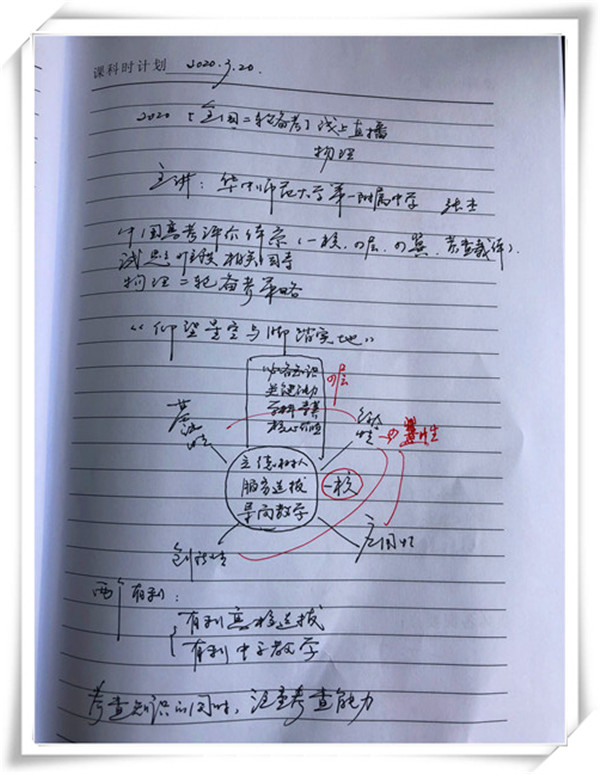 课科时计划 2020.3.20.
2020《全国二轮备考》线上直播
物理
主讲：华中师范大学第一附属中学 张
中国高考评价体系（一核、四层、四翼、考查载体）.
试题 相关
物理二轮备考策略
“仰望星空与脚踏实地”
必备知识
关键能力
学科素养
核心价值
四层
基础性
综合性
立德树人
服务选拔
导向教学
一核
创新性
应用性
两个有利：
有利高校选拔
有利中学教学
考查知识的同时，注重考查能力